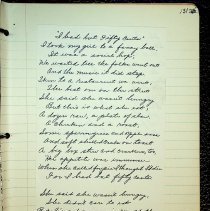 "I had but Fifty Cents"
I took my girl to a fancy ball,
It was a social hop;
We waited till the folks went out
And the music it did stop.
Then to a restaurant we went,
The best one on the street
She said she wasn't hungry,
But this is what she eat.
A dozen raw, a plate of slaw,
A chicken and a roast,
Some sparagrass and apple sass
And soft shelled crabs on toast
A big box stew and crackers too,
Her appetite was immense
When she called for pie I thought I'd die
For I had but fifty cents
She said she wasn't hungry,
She didn't care to eat